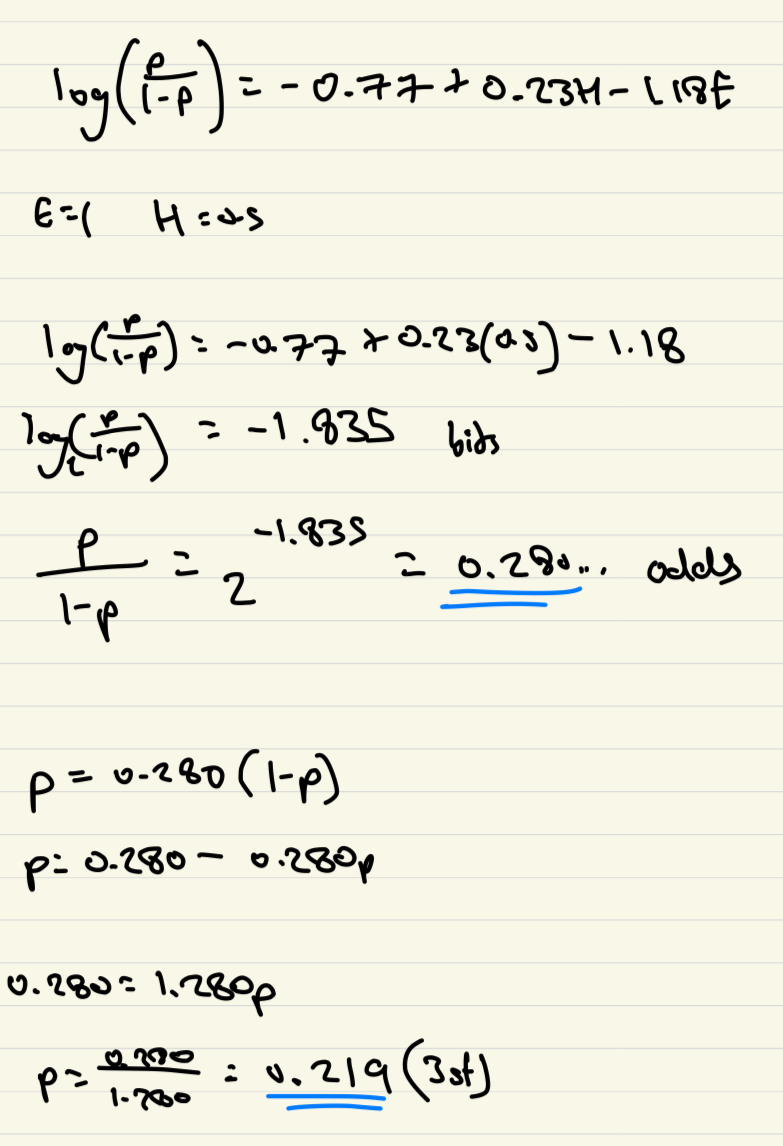 log(p/(1-p)) = -0.77 + 0.23H - 1.18E
E=1 H=0.5
log(p/(1-p)) = -0.77 + 0.23(0.5) - 1.18
log₂(p/(1-p)) = -1.835 bits
p/(1-p) = 2^(-1.835) = 0.280... odds
p = 0.280(1-p)
p = 0.280 - 0.280p
0.280 = 1.280p
p = 0.280/1.280 = 0.219 (3sf)